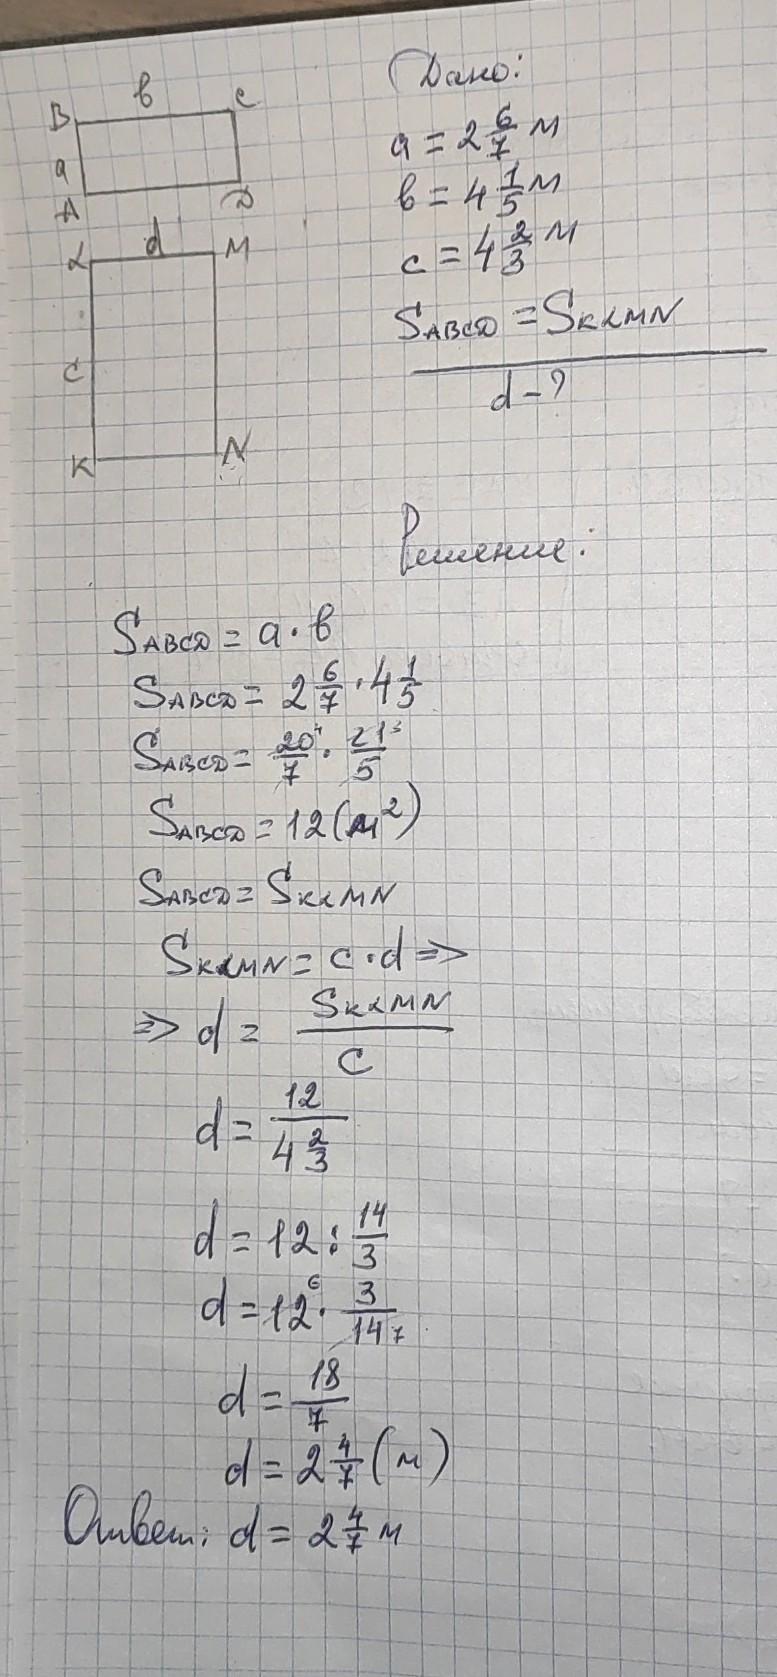 B в C
a
A D
L d M
C
K N
Дано:
a = 2 6/7 м
в = 4 1/5 м
c = 4 2/3 м
SABCD = SKLMN
d - ?
Решение:
SABCD = a · в
SABCD = 2 6/7 · 4 1/5
SABCD = 20⁴/7 · 21³/5
SABCD = 12 (м²)
SABCD = SKLMN
SKLMN = c · d =>
=> d = SKLMN/C
d = 12/4 2/3
d = 12 : 14/3
d = 12⁶ · 3/14 7
d = 18/7
d = 2 4/7 (м)
Ответ: d = 2 4/7 м